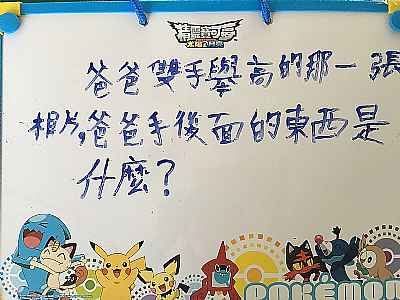 精靈寶可夢
爸爸雙手舉高的那一張
相片,爸爸手後面的東西是
什麼?
POKÉMON